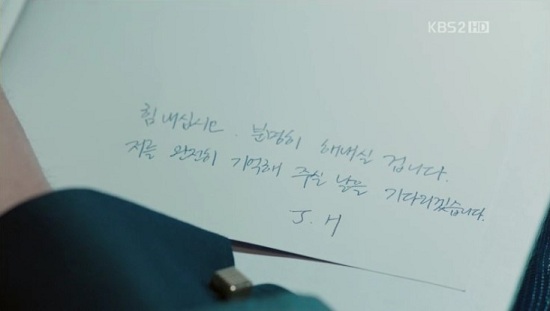 KBS2 HD
힘내십시오. 분명히 해내실 겁니다.
저를 완전히 기억해 주실 날을 기다리겠습니다.
J. H